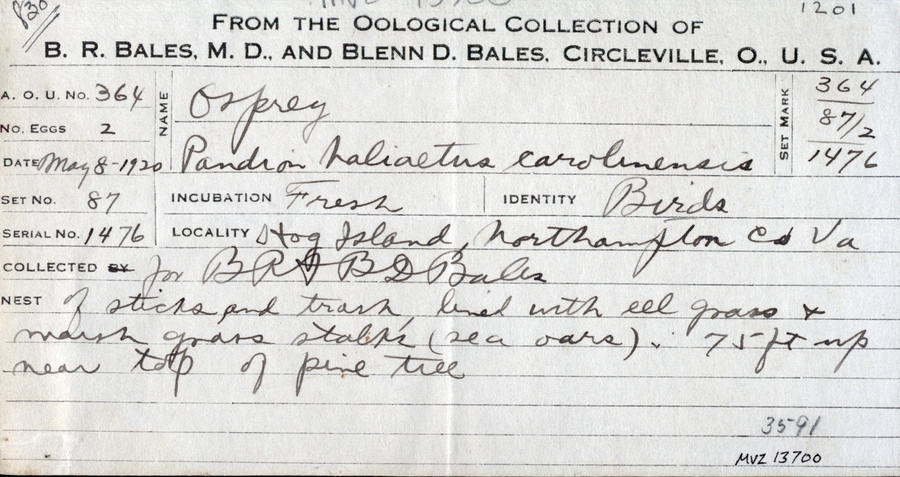 830
1201
FROM THE OOLOGICAL COLLECTION OF
B. R. BALES, M. D., AND BLENN D. BALES, CIRCLEVILLE, O., U. S. A.
A. O. U. No. 364
NAME Osprey
SET MARK 364
87/2
1476
No. EGGS 2
DATE May 8-1920 Pandion haliaetus carolinensis
SET No. 87 INCUBATION Fresh IDENTITY Birds
SERIAL No. 1476 LOCALITY Hog Island, Northampton Co Va
COLLECTED BY for B R & B D Bales
NEST of sticks and trash, lined with eel grass &
marsh grass stalks (sea oars). 75 ft up
near top of pine tree
3591
MVZ 13700